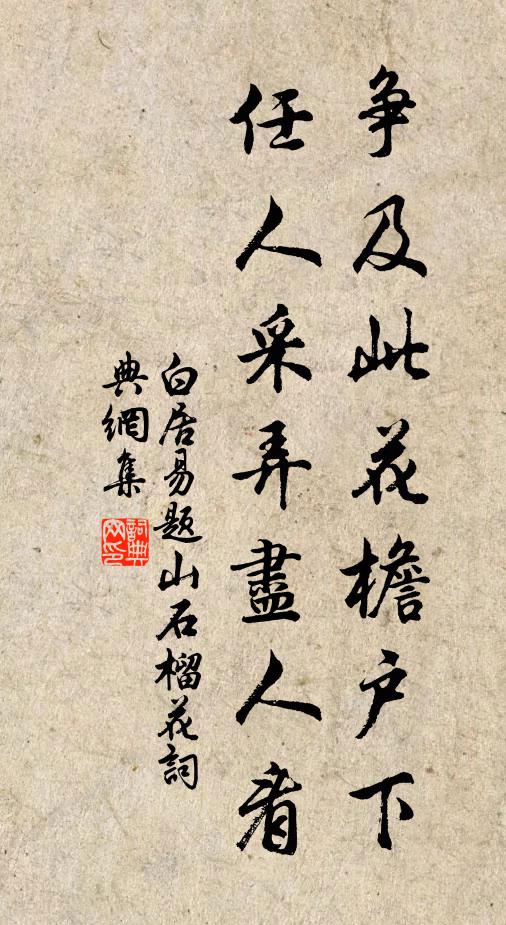 争及此花檐户下
任人采弄盡人看
白居易题山石榴花詞
典網集
詞典
网印